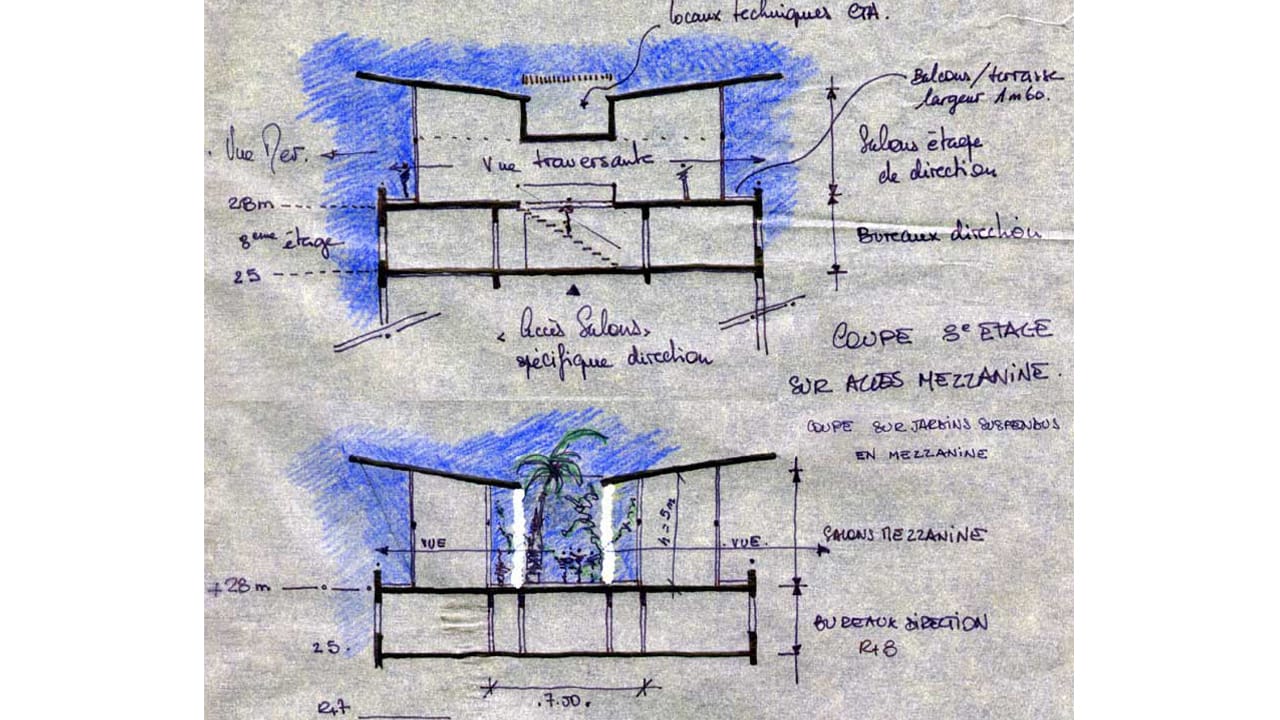 locaux techniques CTA.
Balcons/terrasse
largeur 1m60.
Vue Mer.
Vue traversante
Salons étage
de direction
28m
8eme étage
25
Bureaux direction
Accès Salons,
spécifique direction
COUPE 8e ETAGE
SUR ACCES MEZZANINE.
COUPE SUR JARDINS SUSPENDUS
EN MEZZANINE
h = 5m
VUE
VUE.
SALONS MEZZANINE
+28m
BUREAUX DIRECTION
R+8
25.
7.50.
R+7